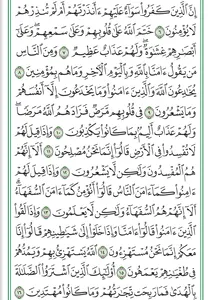 إِنَّ الَّذِينَ كَفَرُوا سَوَاءٌ عَلَيْهِمْ ءَأَنذَرْتَهُمْ أَمْ لَمْ تُنذِرْهُمْ
لَا يُؤْمِنُونَ ٦ خَتَمَ اللَّهُ عَلَىٰ قُلُوبِهِمْ وَعَلَىٰ سَمْعِهِمْ وَعَلَىٰ
أَبْصَارِهِمْ غِشَاوَةٌ وَلَهُمْ عَذَابٌ عَظِيمٌ ٧ وَمِنَ النَّاسِ
مَن يَقُولُ ءَامَنَّا بِاللَّهِ وَبِالْيَوْمِ الْءَاخِرِ وَمَا هُم بِمُؤْمِنِينَ ٨
يُخَادِعُونَ اللَّهَ وَالَّذِينَ ءَامَنُوا وَمَا يَخْدَعُونَ إِلَّا أَنفُسَهُمْ
وَمَا يَشْعُرُونَ ٩ فِي قُلُوبِهِم مَّرَضٌ فَزَادَهُمُ اللَّهُ مَرَضًا
وَلَهُمْ عَذَابٌ أَلِيمٌ بِمَا كَانُوا يَكْذِبُونَ ١٠ وَإِذَا قِيلَ لَهُمْ
لَا تُفْسِدُوا فِي الْأَرْضِ قَالُوا إِنَّمَا نَحْنُ مُصْلِحُونَ ١١ أَلَا إِنَّهُمْ
هُمُ الْمُفْسِدُونَ وَلَٰكِن لَّا يَشْعُرُونَ ١٢ وَإِذَا قِيلَ لَهُمْ
ءَامِنُوا كَمَا ءَامَنَ النَّاسُ قَالُوا أَنُؤْمِنُ كَمَا ءَامَنَ السُّفَهَاءُ
أَلَا إِنَّهُمْ هُمُ السُّفَهَاءُ وَلَٰكِن لَّا يَعْلَمُونَ ١٣ وَإِذَا لَقُوا
الَّذِينَ ءَامَنُوا قَالُوا ءَامَنَّا وَإِذَا خَلَوْا إِلَىٰ شَيَاطِينِهِمْ قَالُوا إِنَّا
مَعَكُمْ إِنَّمَا نَحْنُ مُسْتَهْزِءُونَ ١٤ اللَّهُ يَسْتَهْزِئُ بِهِمْ وَيَمُدُّهُمْ
فِي طُغْيَانِهِمْ يَعْمَهُونَ ١٥ أُولَٰئِكَ الَّذِينَ اشْتَرَوُا الضَّلَالَةَ
بِالْهُدَىٰ فَمَا رَبِحَت تِّجَارَتُهُمْ وَمَا كَانُوا مُهْتَدِينَ ١٦